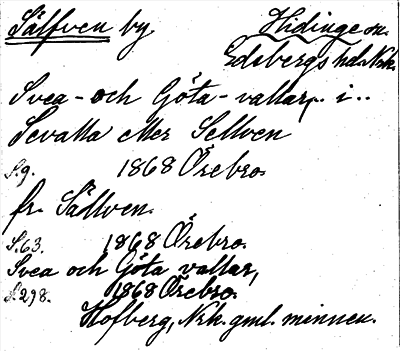 Sälfven by Hidinge sn.
Edsbergs hd. Nrk.
Svea- och Göta-vallar, i..
Sevalla eller Sellven
S.9. 1868 Örebro.
fr. Sällven.
S.63. 1868 Örebro.
Svea och Göta vallar,
S.298. 1868 Örebro.
Hofberg, Nrk. gml. minnen.